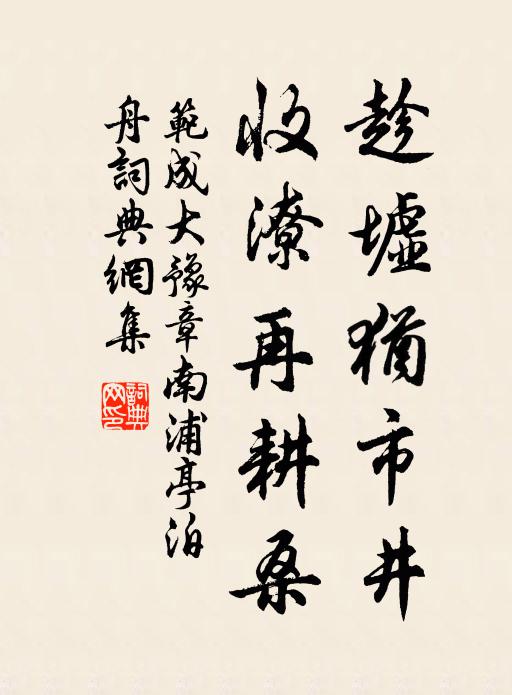 趁墟猶市井
收潦再耕桑
範成大豫章南浦亭泊
舟詞典網集
詞典網印